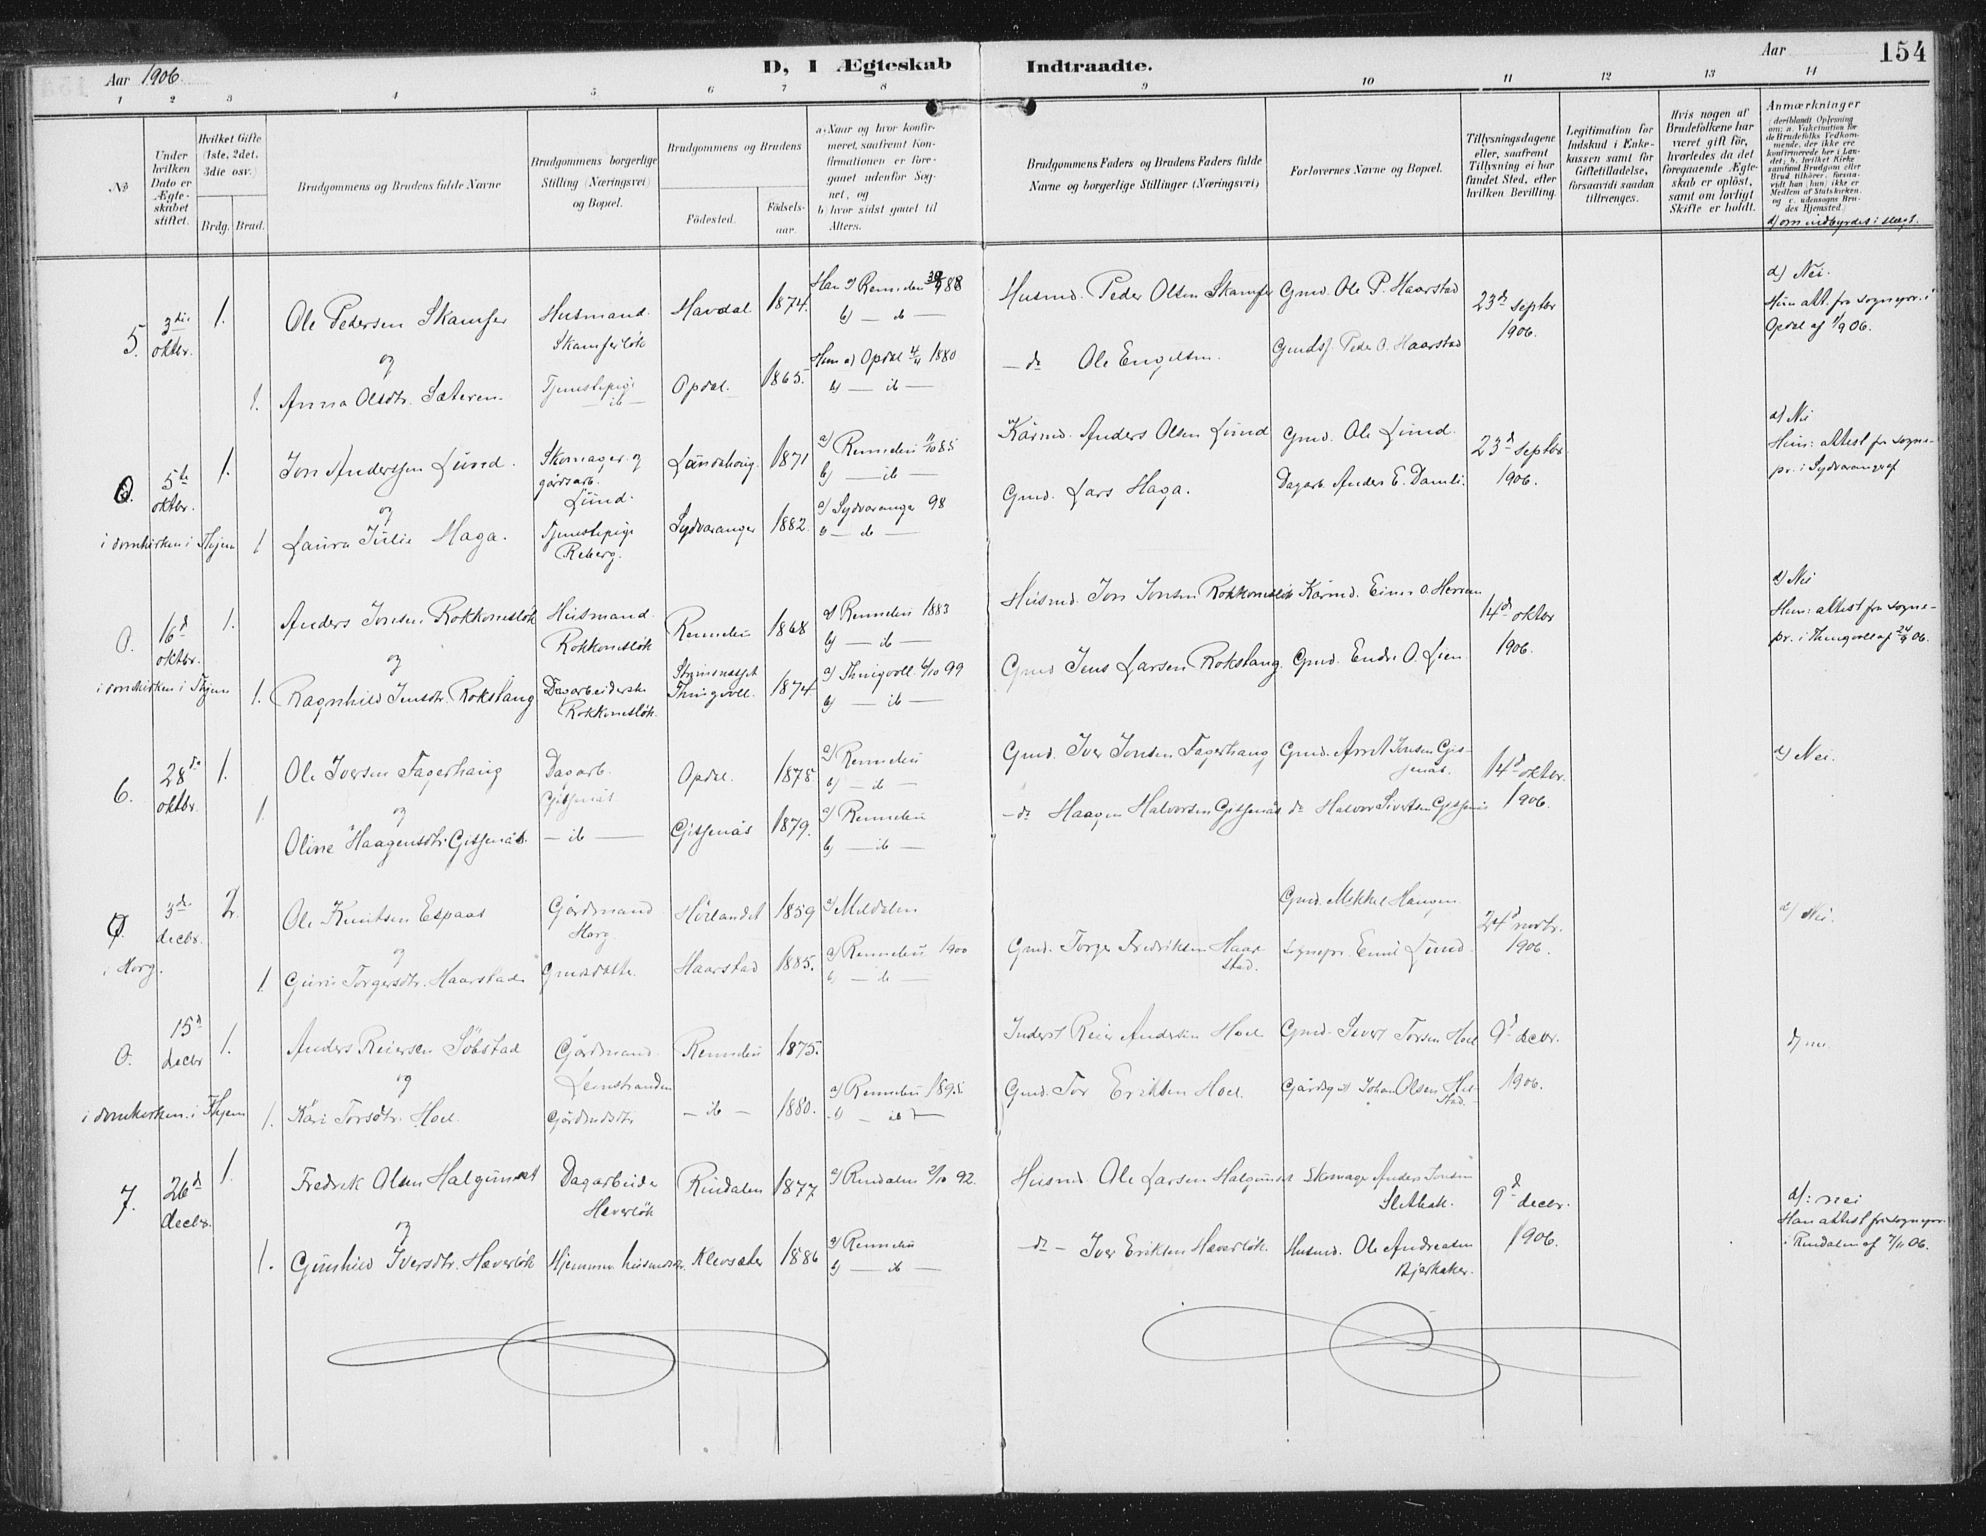 Aar 1906.
D, I Ægteskab Indtraadte.
Aar 154
1 2 3 4 5 6 7 8 9 10 11 12 13 14
No
Under hvilken Dato er Ægteskabet stiftet.
Hvilket Gifte (1ste, 2det, 3die osv.)
Brdg. Brud.
Brudgommens og Brudens fulde Navne
Brudgommens borgerlige Stilling (Næringsvei) og Bopæl.
Brudgommens og Brudens
Födested.
Födselsaar.
a) Naar og hvor konfirmeret, saafremt Konfirmationen er foregaaet udenfor Sognet, og
b) hvor sidst gaaet til Alters.
Brudgommens Faders og Brudens Faders fulde Navne og borgerlige Stillinger (Næringsvei)
Forlovernes Navne og Bopæl.
Tillysningsdagene eller, saafremt Tillysning ei har fundet Sted, efter hvilken Bevilling.
Legitimation for Indskud i Enkekassen samt for Giftetilladelse, forsaavidt saadan tiltrænges.
Hvis nogen af Brudefolkene har været gift før, hvorledes da det foregaaende Ægteskab er opløst, samt om lovligt Skifte er holdt.
Anmærkninger
d) om indbyrdes i slægt.
5. 3die oktbr. 1. Ole Pedersen Skamfer Husmand Skamferløk Havdal 1874. Han a) Rennebu 88 b) — ib —
Husmd. Peder Olsen Skamfer Gmd. Ole P. Haarstad 23de septbr 1906. d) Nei. Hun att. fra sognepr. i Opdal af 1/9 06.
og
1. Anna Olsdtr. Sæteren Tjenestepige — ib — Opdal. 1865. Hun a) Opdal 1880 b) — ib —
— do Ole Engelsen. Gmdsf. Peder O. Haarstad
0. 5te oktbr. 1. Jon Anderssen Lund. Skomager og gårdsarb. Lund. Lundahoug. 1871 a) Rennebu 11/10 85 b) — ib —
Kårmd. Anders Olsen Lund Gmd. Ole Lund. 23d septbr. 1906. d) Nei Hun: attest fra sognepr. i Sydvaranger
og
i domkirken i Thjem 1. Laura Julie Haga. Tjenestepige Reberg. Sydvaranger 1882. a) Sydvaranger 98 b) — ib —
Gmd. Lars Haga. Dagarb. Anders E. Damli.
0. 16d oktbr. 1. Anders Jonsen Rokkonesløk Husmand Rokkonesløk Rennebu 1868 a) Rennebu 1883 b) — ib —
Husmd. Jon Jonsen Rokkonesløk Kårmd. Einar O. Herrem 14d oktbr 1906. d) Nei Hun: attest fra sognepr. i Thingvoll af 24/9 06.
og
i domkirken i Thjem 1. Ragnhild Jensdtr. Rokstang Dagarbeiderske Rokkonesløk. Thingvoll. 1874 a) Thingvoll 6/10 99 b) — ib —
Gmd Jens Larsen Rokstang. Gmd. Endre O. Lien
6. 28de oktbr. 1. Ole Iversen Fagerhaug Dagarb. Gisnås Opdal. 1875 a) Rennebu b) — ib —
Gmd. Iver Jonsen Fagerhaug Gmd. Arnt Jonsen Gisnås. 14d oktbr. 1906. d) Nei.
og
1. Oline Haagensdtr. Gisnås. — ib — Gisnås 1879. a) Rennebu b) — ib —
— do Haagen Halvorsen Gisnås do Halvor Sivertsen Gisnås
0. 3de decbr. 2. Ole Knutsen Espaas Gårdmand Horg Hörlandet 1859 a) Meldalen
Gmd. Mikkel Haugen 24d novbr. 1906. d) Nei.
og
i Horg. 1. Guri Torgersdtr. Haarstad Gmdsdtr. Haarstad 1885. a) Rennebu 1900 b) — ib —
Gmd. Torger Fredriksen Haarstad. sognepr. Emil Lund.
0. 15d decbr 1. Anders Reiersen Söbstad Gårdmand. Leinstranden Rennebu 1875.
Inderst Reier Andersen Hoel Gmd. Sivert Torsen Hoel 9d decbr. 1906. d) nei.
og
i domkirken i Thjem 1. Kari Torsdtr. Hoel. Gårdmdsdtr — ib — 1880. a) Rennebu 1895 b) — ib —
Gmd. Tor Eriksen Hoel. Johan Olsen
7. 26d decbr. 1. Fredrik Olsen Halgunset Dagarbeider Heverløk Rindalen 1877 a) Rindalen 2/10 92.
Husmd Ole Larsen Halgunset Skomager Anders Jonsen Slethak. 9d decbr. 1906. d): nei Han attest fra sognepr. i Rindalen af 7/11 06.
og
1. Gunhild Iversdtr. Hæverløk Hjemmev. husmdsdtr. Klevsæter 1886 a) Rennebu b) — ib —
— do — Iver Eriksen Hæverløk. Husmd. Ole Andreasen Bjerkaker.